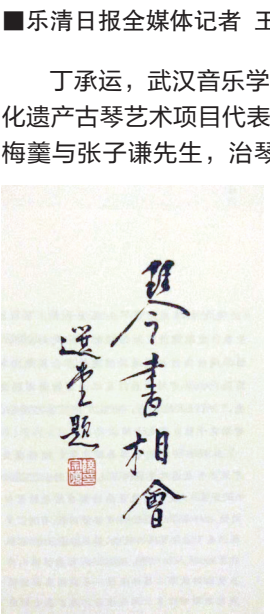 ■乐清日报全媒体记者 王
丁承运，武汉音乐学
化遗产古琴艺术项目代表
梅羹与张子谦先生，治琴
琴書相會
選堂題